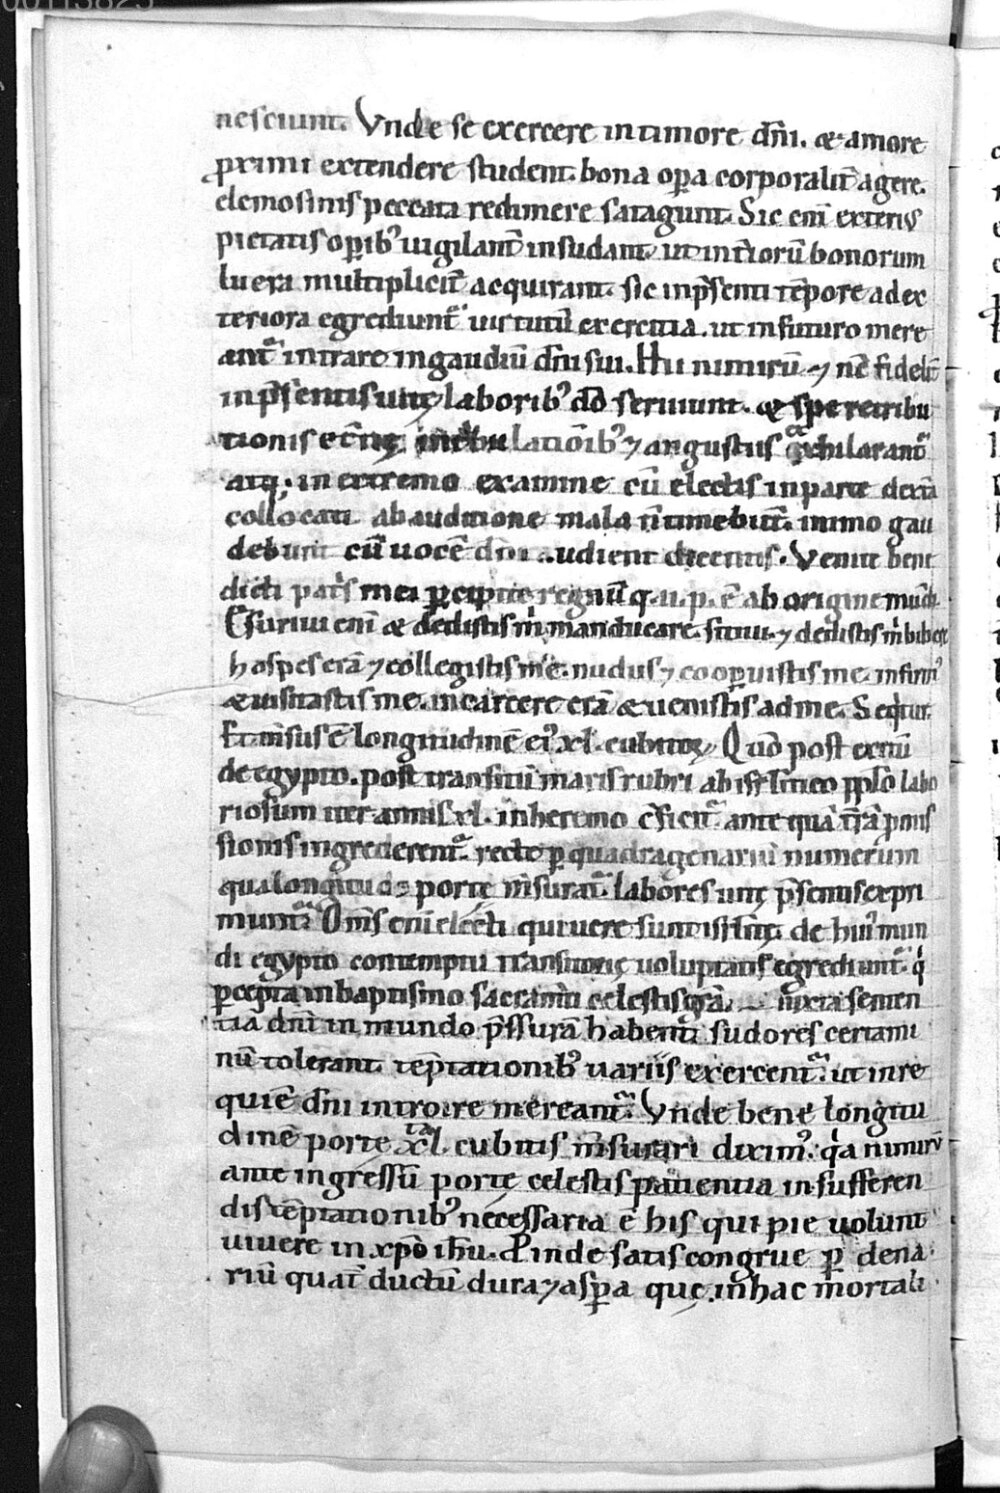 nesciunt. Vnde se exercere in timore dn̄i. & amore
ꝓximi extendere student. bona oꝑa corporalit̄ agere.
elemosinis peccata redimere satagunt. Sic eni̅ exteriꝰ
pietatis oꝑibꝰ uigilant̄ insudant. ut int̄ioru̅ bonorum
lucra multiplicit̄ acquirant. sic in p̄senti te̅pore ad ex
teriora egrediunt᷑ uirtutu̅ exercitia. ut in futuro mere
ant᷑ intrare in gaudiu̅ dn̄i sui. Hii nimiru̅ ⁊ ne̅ fidelit̄
in p̄sentis uitę laboribꝰ do̅ seruiunt. & spe retribu
tionis et̄nę in tribulationibꝰ ⁊ angustiis exhilarant᷑
atq; in extremo examine cu̅ electis in parte dextra
collocati ab auditione mala n̄ timebunt. immo gau
debunt cu̅ uoce̅ dn̄i audient dicentis. Venite bene
dicti pat̄s mei ꝑcipite regnu̅ q. u. p. e̅ ab origine mundi.
Esuriui eni̅ & dedistis m̄ manducare. sitiui. ⁊ dedistis m̄ bibere
hospes era̅ ⁊ collegistis me. nudus ⁊ cooꝑuistis me. infirmꝰ
& uisitastis me. in carcere era̅ & uenistis ad me. Seq̄tur.
Et m̄sus e̅ longitudine̅ eiꝰ xl. cubitorꝝ Quod post exitu̅
de egypto. post transitu̅ maris rubri ab isrl̄itico ppl̄o labo
riosum iter annis xl. in heremo c̄ficit᷑ ante qua̅ t̄ra̅ ꝓmis
sionis ingrederent᷑. recte ꝑ quadragenariu̅ numerum
qua longitudo portę m̄surat᷑. labores uitę p̄sentis expri
munt᷑. Om̄s eni̅ electi qui uere sunt isrl̄itę. de huiꝰ mun
di egypto contemptu transitorię uoluptatis egrediunt᷑. q̄
ꝑcepta in baptismo sacram̄ti celestis gr̄a. iuxta senten
tia̅ dn̄i in mundo p̄ssura̅ habent. sudores certami
nu̅ tolerant. te̅ptationibꝰ uariis exercent᷑. ut in re
quie̅ dn̄i introire mereant᷑. Vnde bene longitu
dine̅ portę xl. cubitis m̄surari diximꝰ. q̄a nimiru̅
ante ingressu̅ portę celestis patientia in sufferen
dis te̅ptationibꝰ necessaria e̅ his qui pie uolunt
uiuere in xp̄o ih̄u. Proinde satis congrue ꝑ dena
riu̅ quat̄ ductu̅ dura ⁊ asꝑa quę in hac mortali